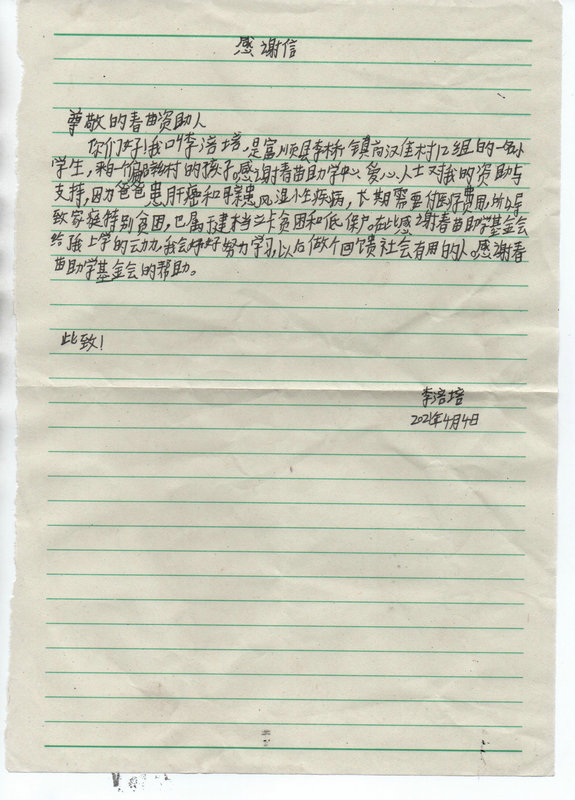 感谢信
尊敬的春苗资助人
你们好!我叫李涪培,是富顺县李桥镇汉佳村12组的一名小
学生,来自一个偏僻农村的孩子。感谢春苗助学中心、爱心人士对我的资助与
支持,因为爸爸患肝癌和母亲患风湿小生疾病,长期需要付医疗费用,所以导
致家庭特别贫困,已属于建档立卡贫困和低保户。在此感谢春苗助学基金会
给我上学的动力,我会好好努力学习,以后做个回馈社会有用的人。感谢春
苗助学基金会的帮助。
此致!
李涪培
2021年4月4日